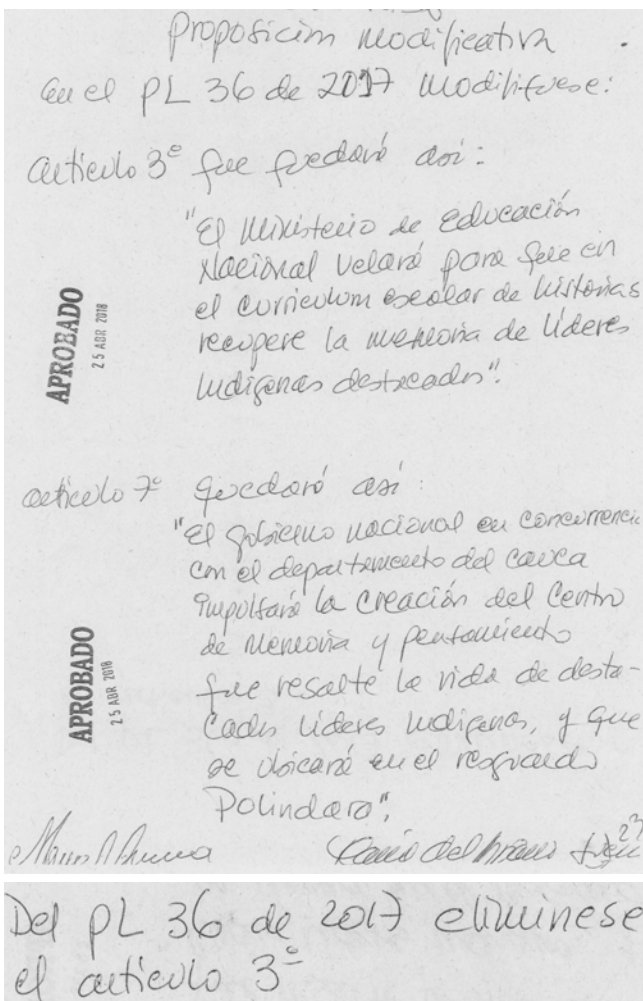 Proposición modificativa
en el PL 36 de 2017 modifíquese:
artículo 3º que quedará así:
"El Ministerio de Educación
Nacional velará para que en
el curriculum escolar de historias
recupere la memoria de líderes
indígenas destacados".
APROBADO
25 ABR 2018
artículo 7º quedará así:
"El gobierno nacional en concurrencia
con el departamento del cauca
impulsará la creación del Centro
de Memoria y pensamiento
que resalte la vida de desta-
cados líderes indígenas, y que
se ubicará en el resguardo
Polindara".
APROBADO
25 ABR 2018
Del PL 36 de 2017 eliminese
el artículo 3º